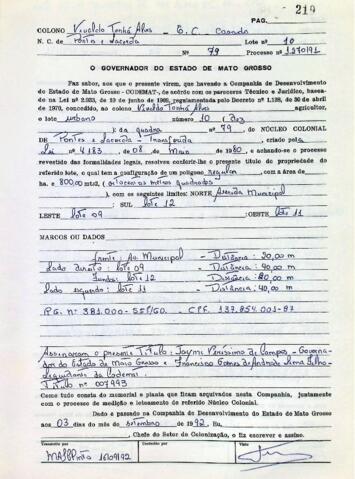 219
PAG.
COLONO Vivaldo Tenhá Alves - E.C. Casado
N. C. de Pontes e Lacerda Lote nº 10
Nº 79 Processo 1570191
O GOVERNADOR DO ESTADO DE MATO GROSSO
Faz saber, aos que o presente virem, que havendo a Companhia de Desenvolvimento
do Estado de Mato Grosso - CODEMAT-, de acordo com os pareceres Técnico e Jurídico, basea-
do na Lei nº 2.933, regulamentada pelo Decreto nº 1.138, de 30 de abril
de 1970, concedido, ao colono Vivaldo Tenhá Alves agricultor,
o lote urbano 10 (dez
) da quadra nº 79, do NÚCLEO COLONIAL
DE Pontes e Lacerda - Transferida criado pela
Lei nº 4.183, de 08 de Maio de 1980, e achando-se o processo
revestido das formalidades legais, resolveu conferir-lhe o presente título de propriedade do
referido lote, o qual tem a configuração de um polígono regular com a área de
ha e 800,00 mts2, (oitocentos metros quadrados
), com os seguintes limites: NORTE Avenida Municipal
; SUL lote 12
LESTE lote 09 ; OESTE lote 11
MARCOS OU DADOS
frente: Av. Municipal - Distância: 20,00 m
Lado direito: lote 09 - Distância: 40,00 m
Fundos: lote 12 - Distância: 20,00 m
Lado esquerdo: lote 11 - Distância: 40,00 m
R.G. nº 381.000-SSP/GO. - CPF. 137.854.001-87
Assinaram o presente Título: Jaymi Veríssimo de Campos - Governa-
dor do Estado de Mato Grosso e Francisco Gomes de Andrade Lima Filho -
Liquidante da Codemat.
Título nº 007993
Como tudo consta do memorial e planta que ficam arquivados nesta Companhia, juntamente
com o processo de medição e loteamento do referido Núcleo Colonial.
Dado e passado na Companhia de Desenvolvimento do Estado de Mato Grosso
aos 03 dias do mês de setembro de 1992, Eu,
, Chefe do Setor de Colonização, o fiz escrever e assino.
Transcrito por
Conferido por
Visto
10/09/92